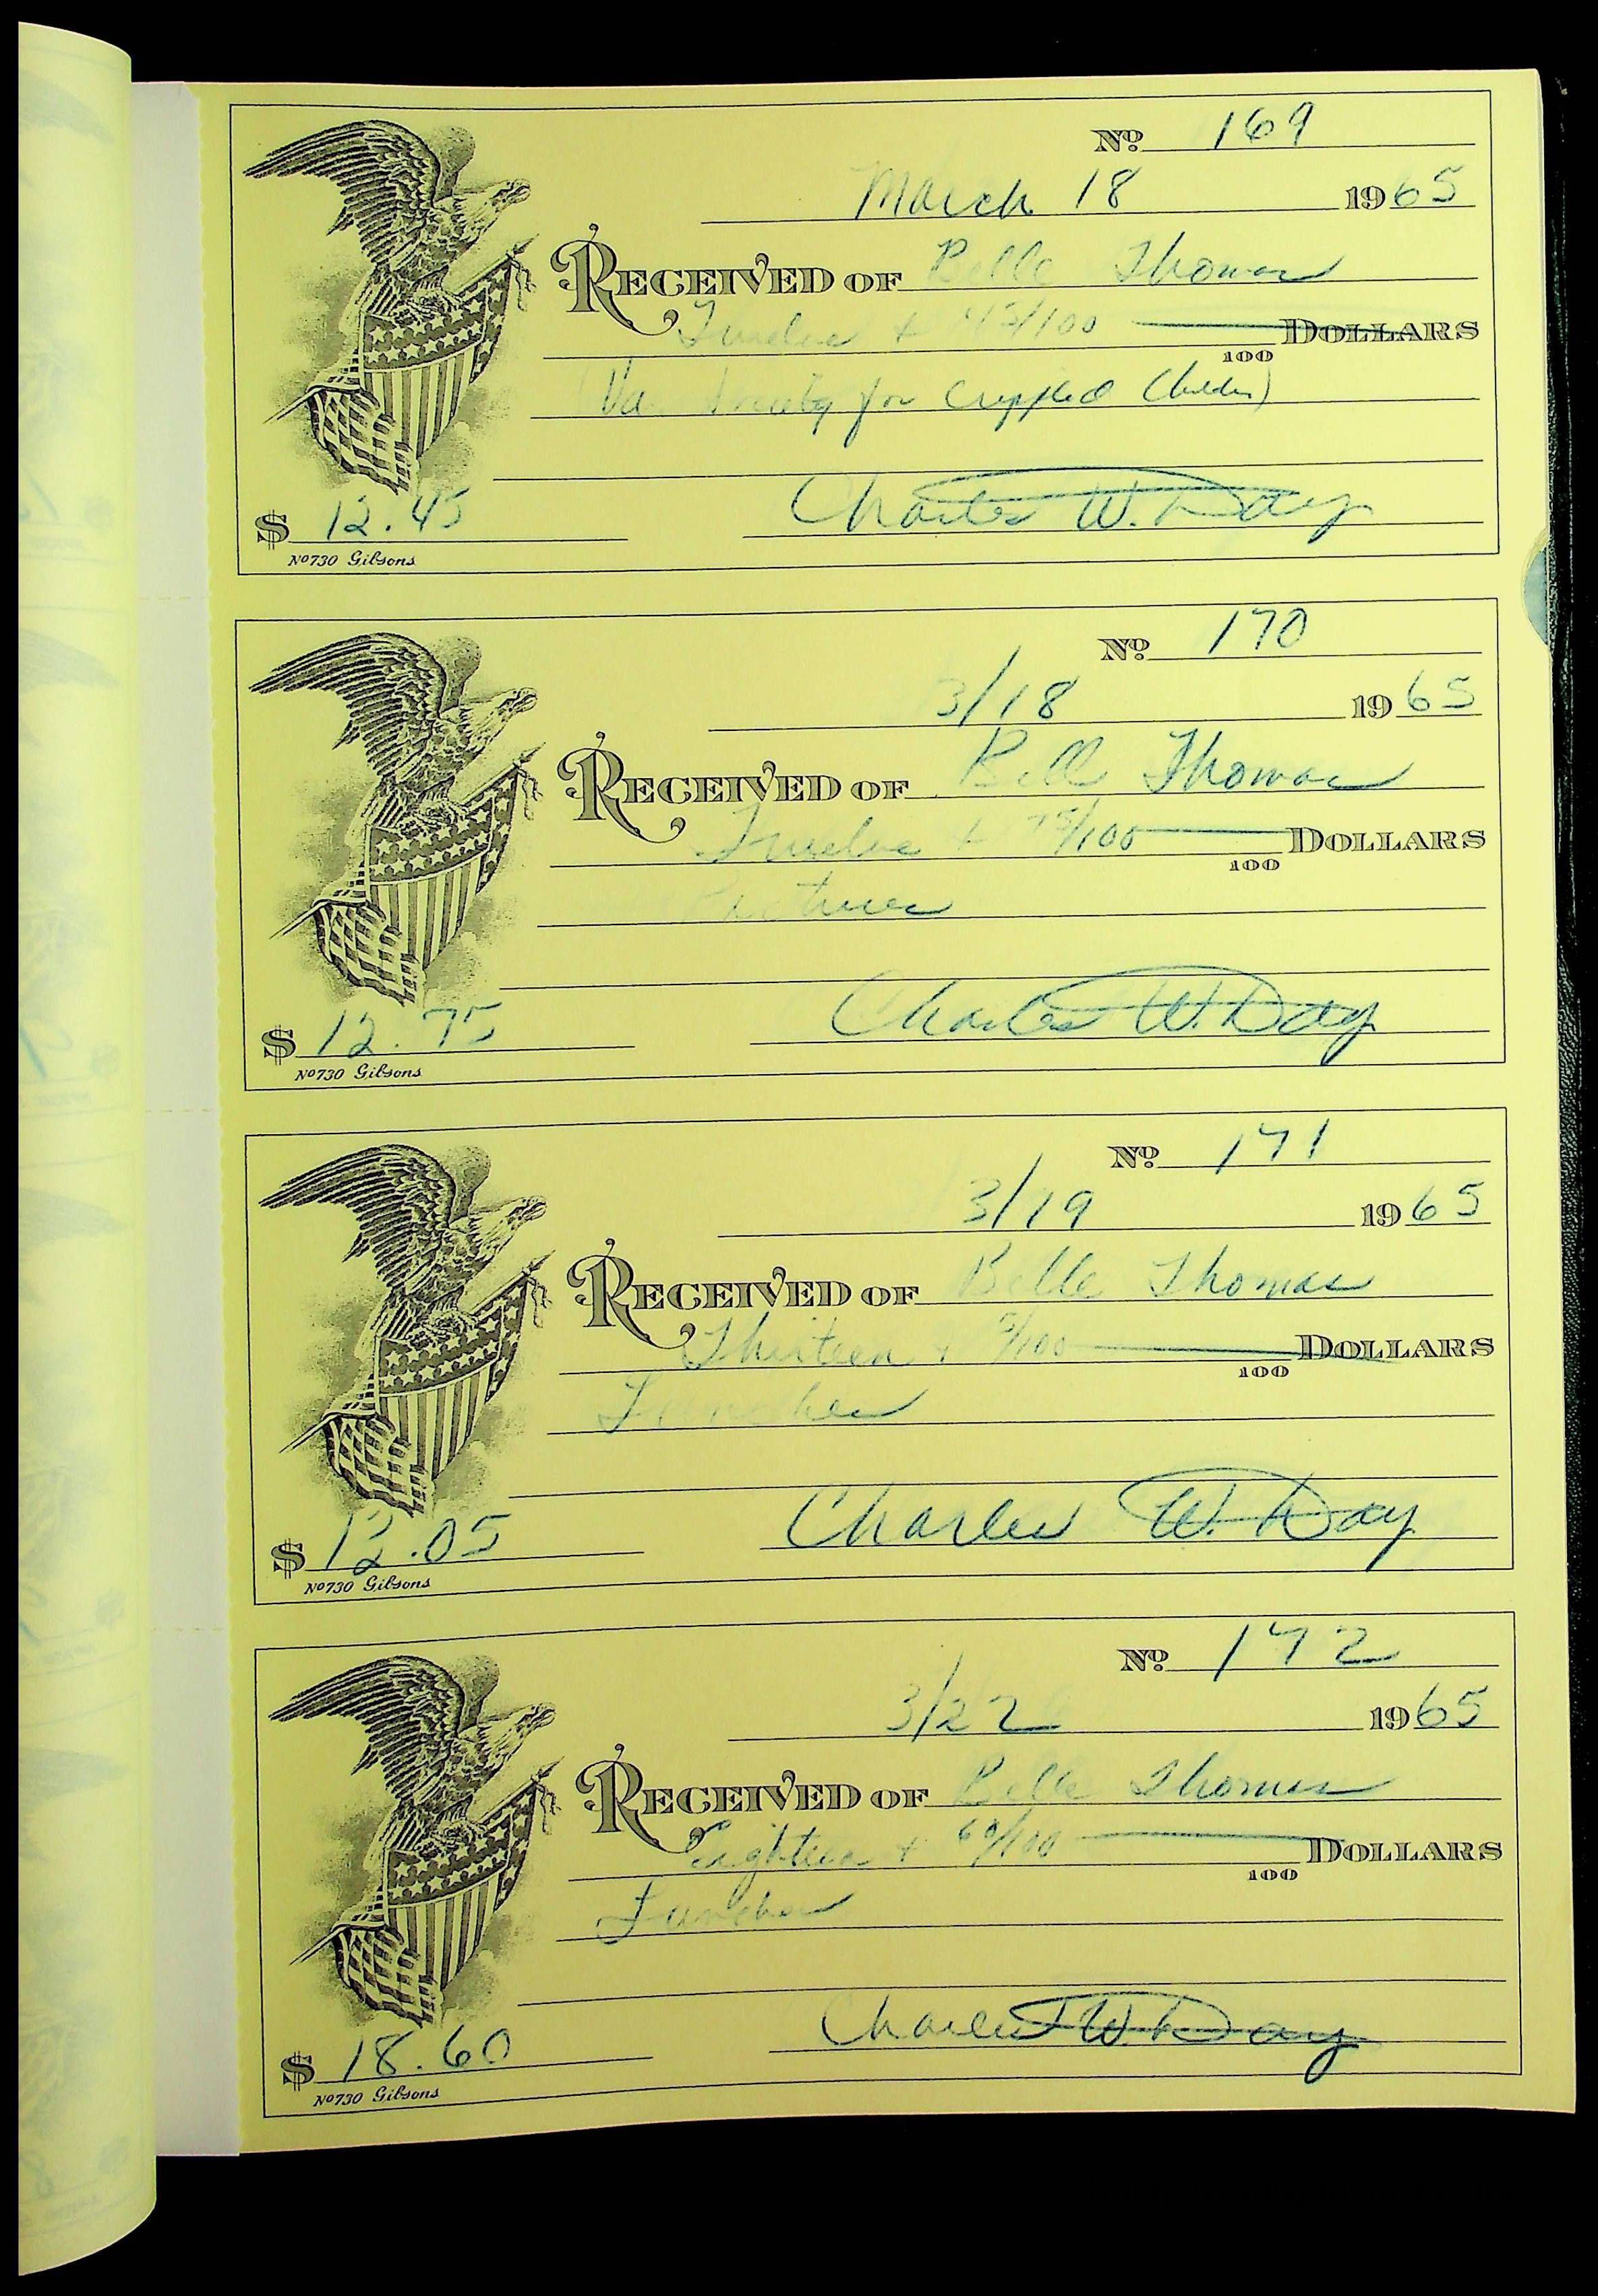 No. 169
March 18 1965
RECEIVED OF Belle Thomas
Twelve + 45/100 DOLLARS
100
for Crippled Children)
$ 12.45 Charles W. Day
No 730 Gibsons
No. 170
3/18 1965
RECEIVED OF Bell Thomas
Twelve + 75/100 DOLLARS
100
Pictures
$ 12.75 Charles W. Day
No 730 Gibsons
No. 171
3/19 1965
RECEIVED OF Belle Thomas
Thirteen + /100 DOLLARS
100
Lunches
$ 13.05 Charles W. Day
No 730 Gibsons
No. 172
3/22 1965
RECEIVED OF Belle Thomas
Eighteen + 60/100 DOLLARS
100
Lunches
$ 18.60 Charles W. Day
No 730 Gibsons